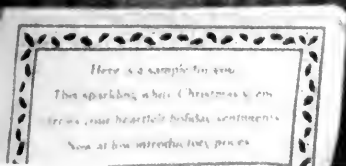 Here is a sample for you
This sparkling white Christmas
your heartfelt holiday sentiments
Now at low introductory prices